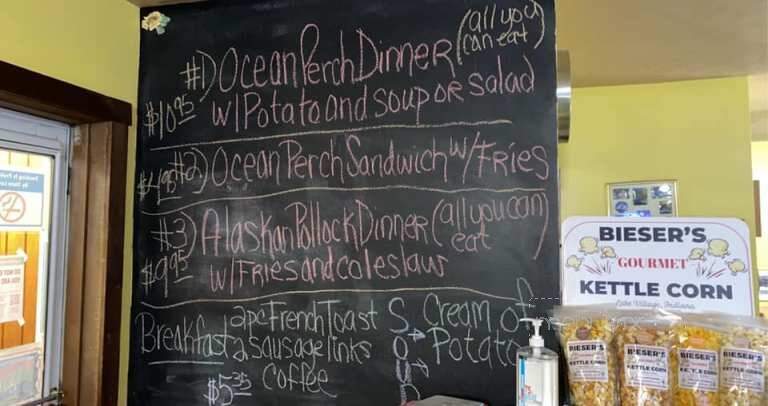 #1) Ocean Perch Dinner (all you can eat)
$10.95 w/Potato and soup or salad
#2) Ocean Perch Sandwich w/Fries
#3) Alaskan Pollock Dinner (all you can eat)
$9.95 w/Fries and coleslaw
Breakfast 2pc French Toast
2 sausage links
coffee
$5.35
SOUP
Cream of
Potato
BIESER'S
GOURMET
KETTLE CORN
Lake Village, Indiana
BIESER'S
KETTLE CORN
BIESER'S
KETTLE CORN
BIESER'S
KETTLE CORN
BIESER'S
KETTLE CORN